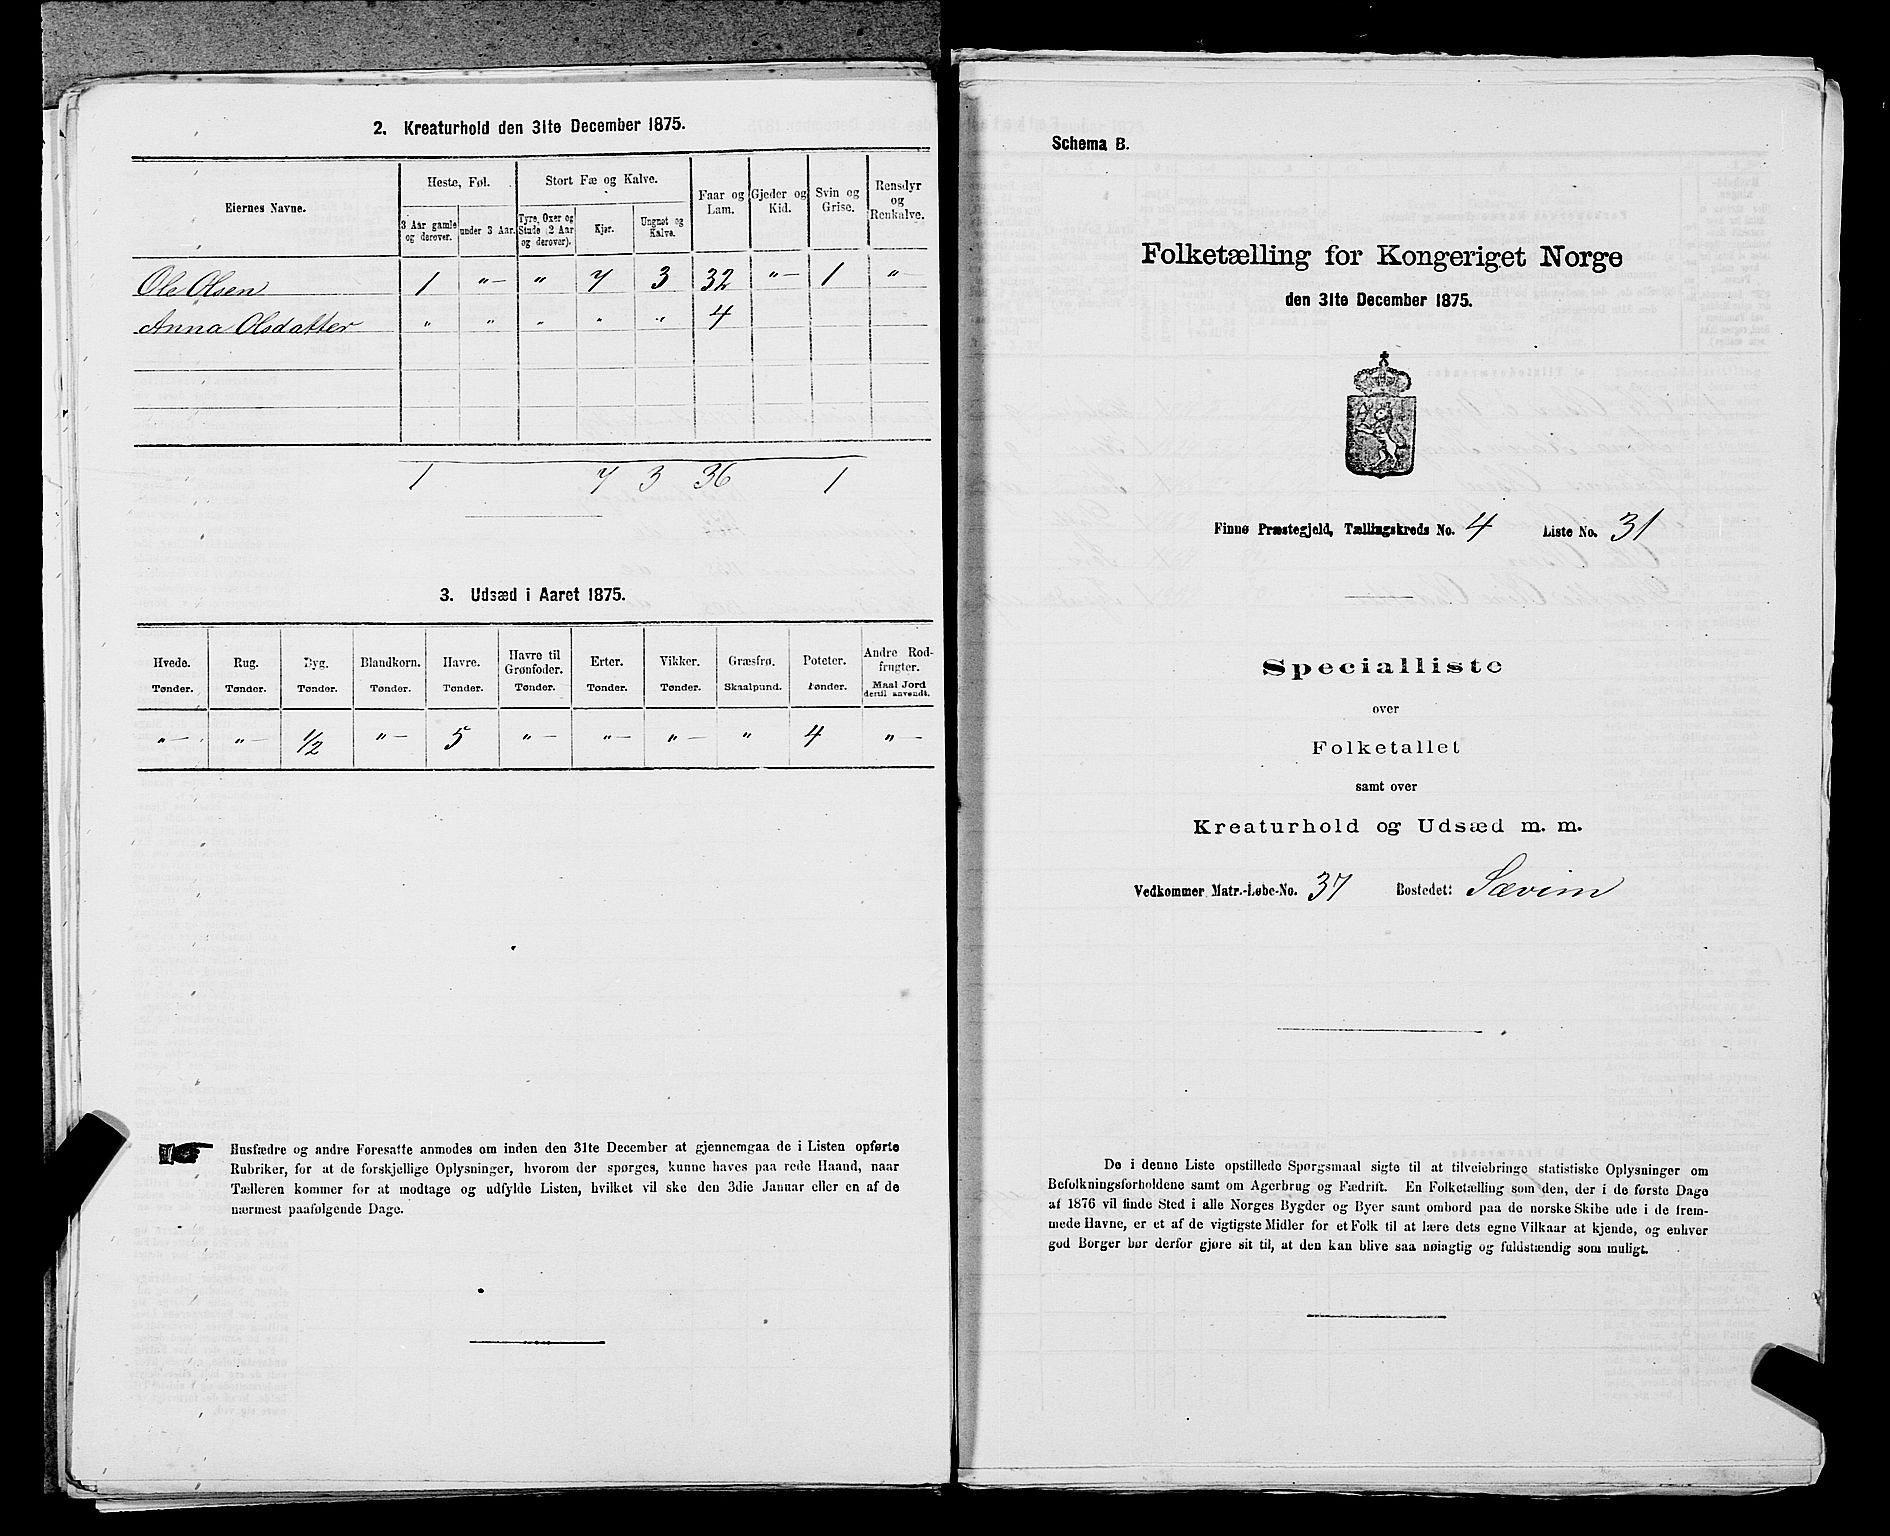 2. Kreaturhold den 31te December 1875.
Eiernes Navne.
Heste, Føl.
Stort Fæ og Kalve.
Faar og Lam.
Gjeder og Kid.
Svin og Grise.
Rensdyr og Renkalve.
3 Aar gamle og derover.
under 3 Aar.
Tyre, Oxer og Stude (2 Aar og derover).
Kjør.
Ungnøt og Kalve.
Ole Olsen 1 "— " 7 3 32 "— 1 "—
Anna Olsdatter " " " " " 4
1 7 3 36 1
3. Udsæd i Aaret 1875.
Hvede. Rug. Byg. Blandkorn. Havre. Havre til Grønfoder. Erter. Vikker. Græsfrø. Poteter. Andre Rodfrugter.
Tønder. Tønder. Tønder. Tønder. Tønder. Tønder. Tønder. Tønder. Skaalpund. Tønder. Maal Jord dertil anvendt.
"— "— 1/2 "— 5 "— "— "— " 4 "—
Husfædre og andre Foresatte anmodes om inden den 31te December at gjennemgaa de i Listen opførte
Rubriker, for at de forskjellige Oplysninger, hvorom der spørges, kunne haves paa rede Haand, naar
Tælleren kommer for at modtage og udfylde Listen, hvilket vil ske den 3die Januar eller en af de
nærmest paafølgende Dage.
Schema B.
Folketælling for Kongeriget Norge
den 31te December 1875.
Finnø Præstegjeld, Tællingskreds No. 4 Liste No. 31
Specialliste
over
Folketallet
samt over
Kreaturhold og Udsæd m. m.
Vedkommer Matr.-Løbe-No. 37 Bostedet: Sævim
De i denne Liste opstillede Spørgsmaal sigte til at tilveiebringe statistiske Oplysninger om
Befolkningsforholdene samt om Agerbrug og Fædrift. En Folketælling som den, der i de første Dage
af 1876 vil finde Sted i alle Norges Bygder og Byer samt ombord paa de norske Skibe ude i de frem-
mede Havne, er et af de vigtigste Midler for et Folk til at lære dets egne Vilkaar at kjende, og enhver
god Borger bør derfor gjøre sit til, at den kan blive saa nøiagtig og fuldstændig som muligt.